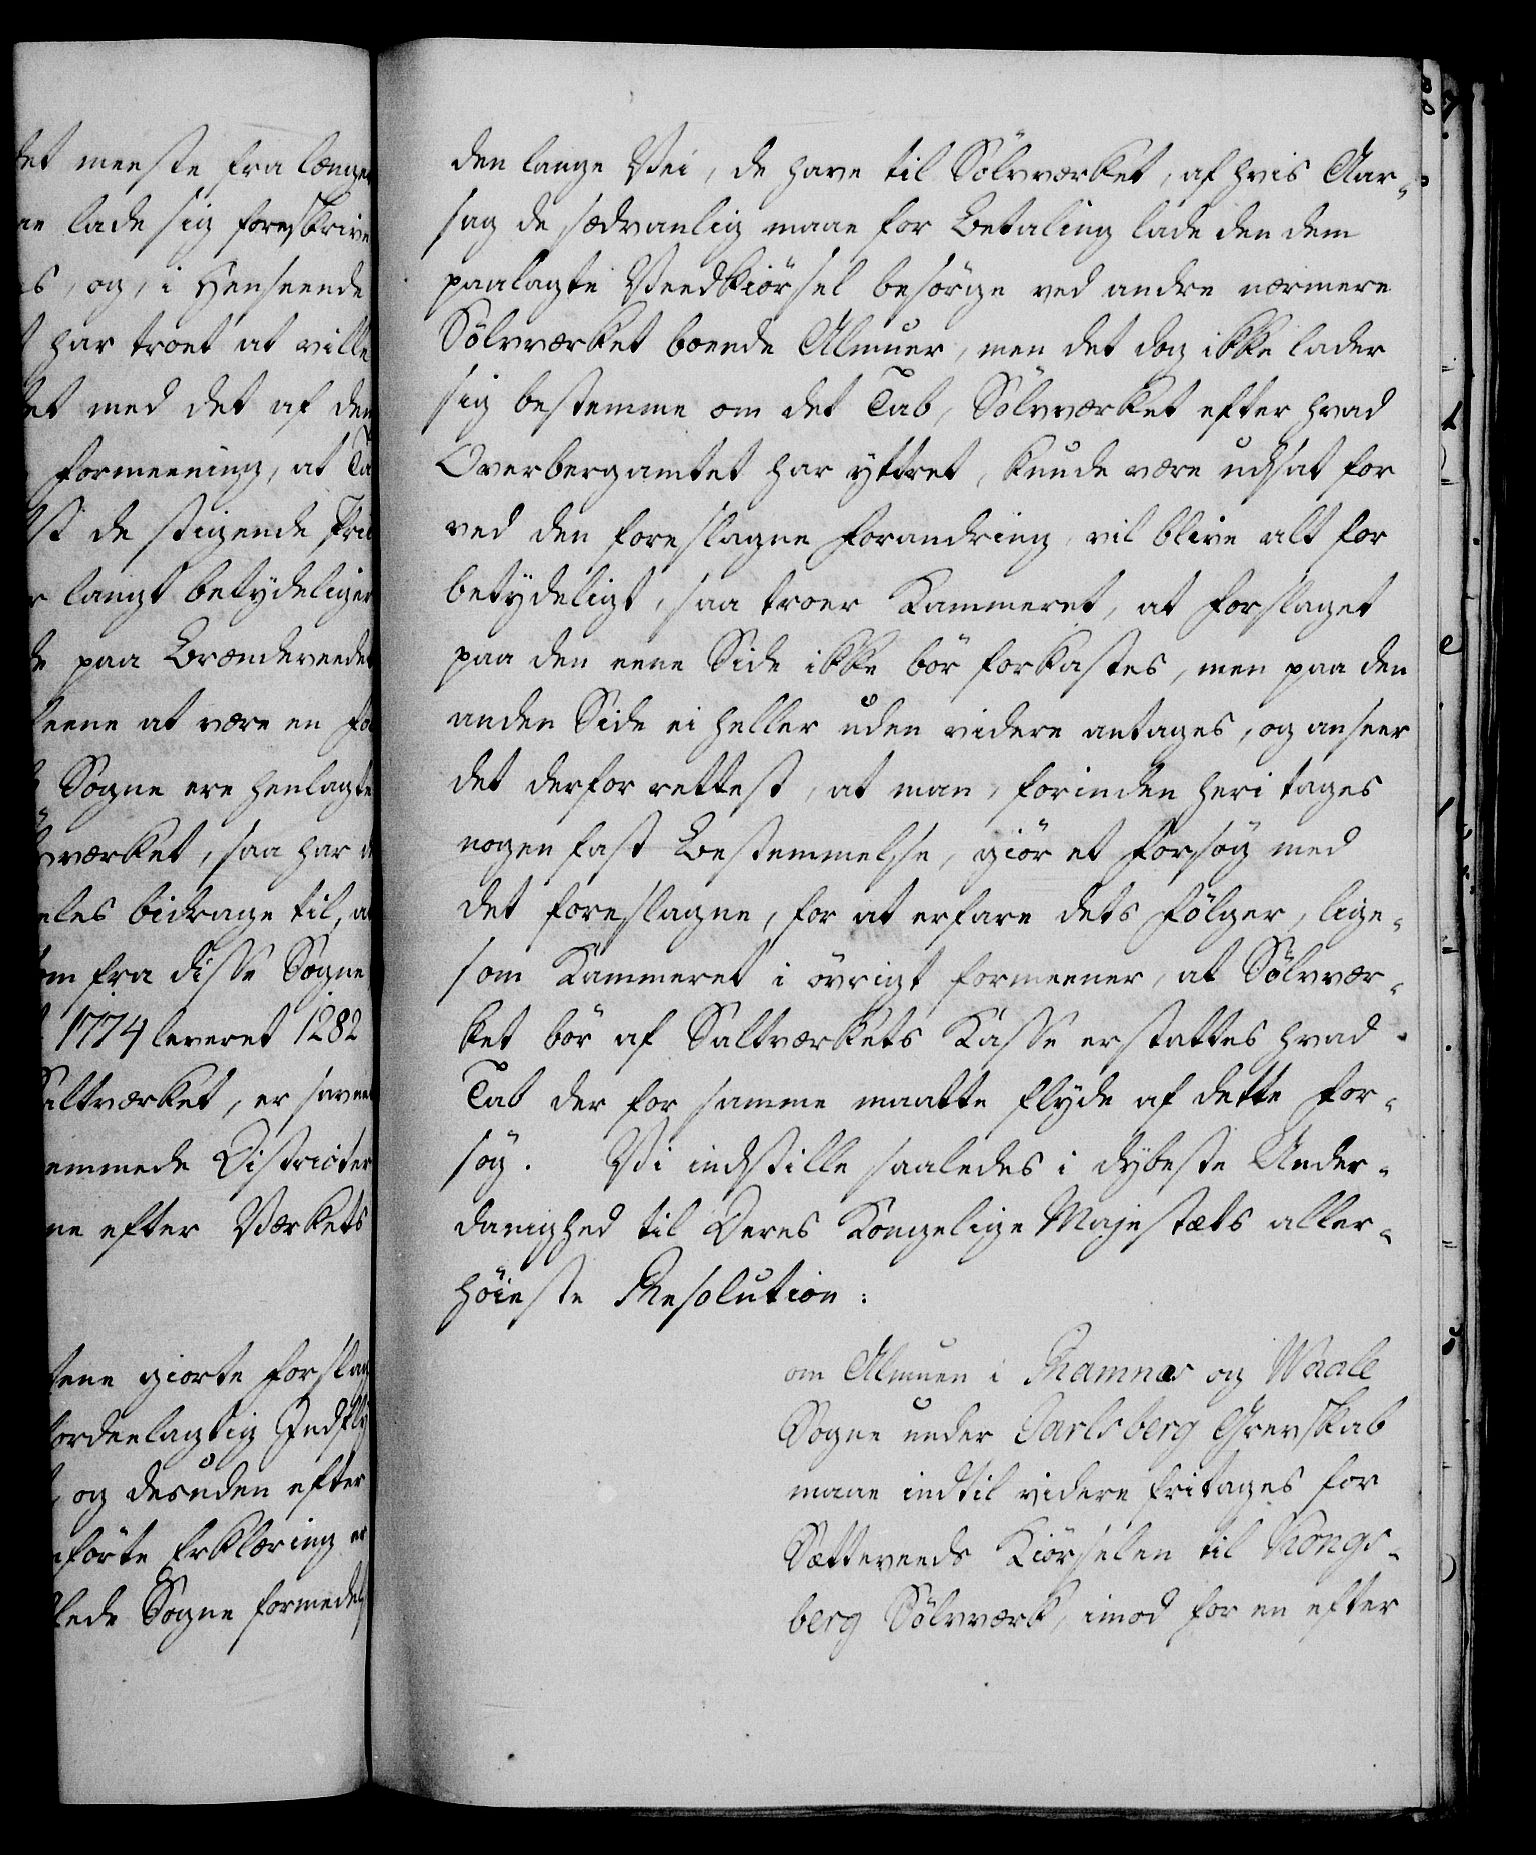 det meeste fra længer
lade sig foreskrive
og, i Henseende
har troet at ville
med det af den
Formeening, at
de stigende
langt betydeliger
paa Brændeveedet
at være en
Sogne ere henlagte
værket, saa har
bidrage til,
fra disse Sogne
1774 leveret 1282
Saltværket, er
Districter
efter Værkets
giorte Forslag
og desuden efter
Erklæring
Sogne formedelst
den lange Vei, de have til Sölvværket, af hvis Aar-
sag de sædvanlig maae for Betaling lade den dem
paalagte Veedkiörsel besörge ved andre nærmere
Sölvværket boende Almuer, men det dog ikke lader
sig bestemme om det Tab, Sölvværket efter hvad
Overbergamtet har yttret, kunde være udsat for
ved den foreslagne Forandring, vil blive alt for
betydeligt, saa troer Kammeret, at Forslaget
paa den eene Side ikke bör forkastes, men paa den
anden Side ei heller uden videre antages, og anseer
det derfor rettest, at man, forinden heri tages
nogen fast Bestemmelse, giör et Forsög med
det foreslagne, for at erfare dets Fölger, lige-
som Kammeret i övrigt formeener, at Sölvvær-
ket bör af Saltværkets Kasse erstattes hvad
Tab der for samme maatte flyde af dette For-
sög. Vi indstille saaledes i dybeste Under-
danighed til Deres Kongelige Majestæts aller-
höieste Resolution:
om Almuen i Ramnæs og Waale
Sogne under Jarlsberg Grevskab
maae indtil videre fritages for
Sætteveeds Kiörselen til Kongs-
berg Sölvværk, imod for en efter